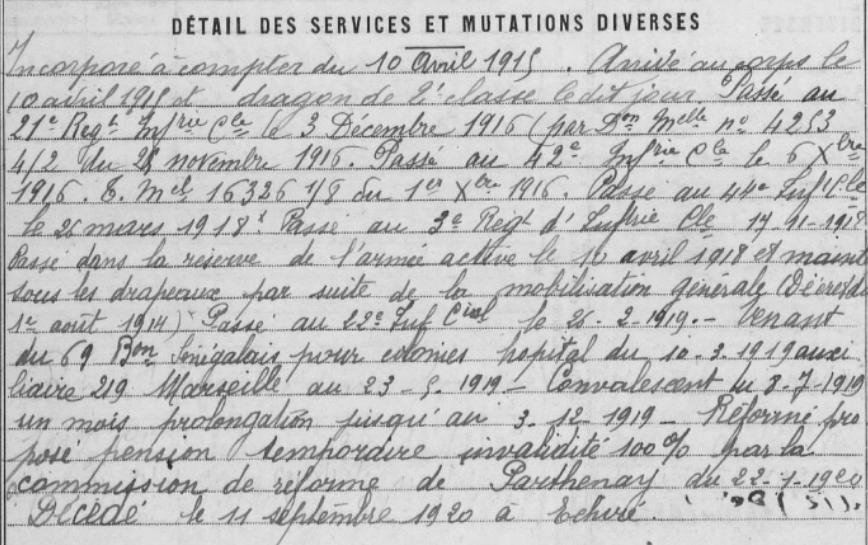 DÉTAIL DES SERVICES ET MUTATIONS DIVERSES
Incorporé à compter du 10 avril 1915. Arrivé au corps le
10 avril 1915 et dragon de 2e classe ledit jour. Passé au
21e Regt Infrie Cle le 3 Décembre 1916 (par Don Melle no 4253
4/2 du 28 novembre 1916. Passé au 42e Infrie Cle le 6 Xbre
1916. E. Mel 16326 1/8 du 1er Xbre 1916. Passé au 44e Inf Cle
le 26 mars 1918 Passé au 3e Regt d'Infrie Cle 17-11-1918
Passé dans la réserve de l'armée active le 10 avril 1918 et maintt
sous les drapeaux par suite de la mobilisation générale (Décret du
1er août 1914) Passé au 22e Inf Ciale le 26-2-1919.- Venant
du 69 Bon Sénégalais pour colonies hopital du 10-3-1919 auxi
liaire 219 Marseille au 23-5-1919 - Convalescent du 8-7-1919
un mois prolongation jusqu'au 3-12-1919 - Réformé pro
posé pension temporaire invalidité 100% par la
commission de réforme de Parthenay du 22-7-1920
Décédé le 11 septembre 1920 à Echiré.